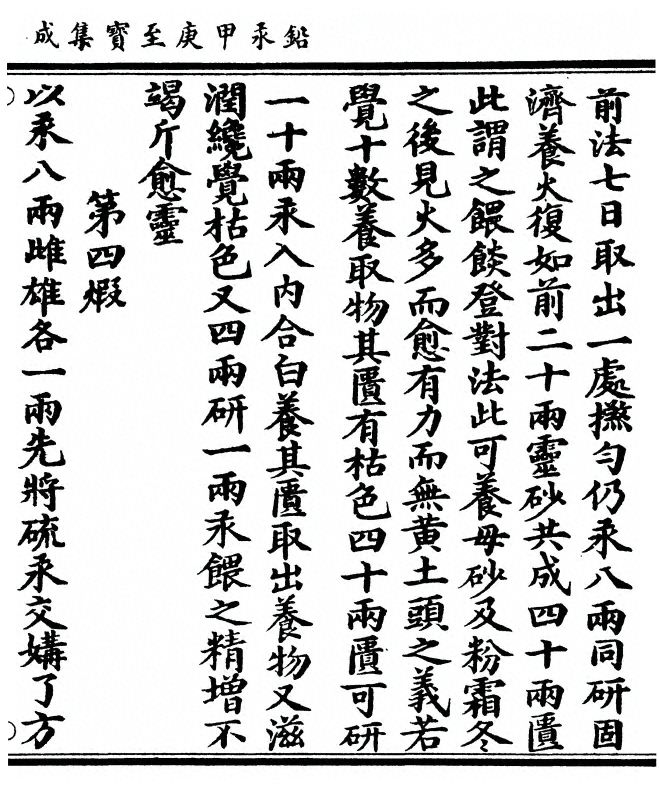 鉛汞甲庚至寶集成
前法七日取出一處撚勻仍汞八兩同研固
濟養火復如前二十兩靈砂共成四十兩匱
此謂之餵餤登對法此可養母砂及粉霜冬
之後見火多而愈有力而無黄土頭之義若
覺十數養取物其匱有枯色四十兩匱可研
一十兩汞入內合白養其匱取出養物又滋
潤纔覺枯色又四兩研一兩汞餵之精增不
竭斤愈靈
第四煆
以汞八兩雌雄各一兩先將硫汞交媾了方